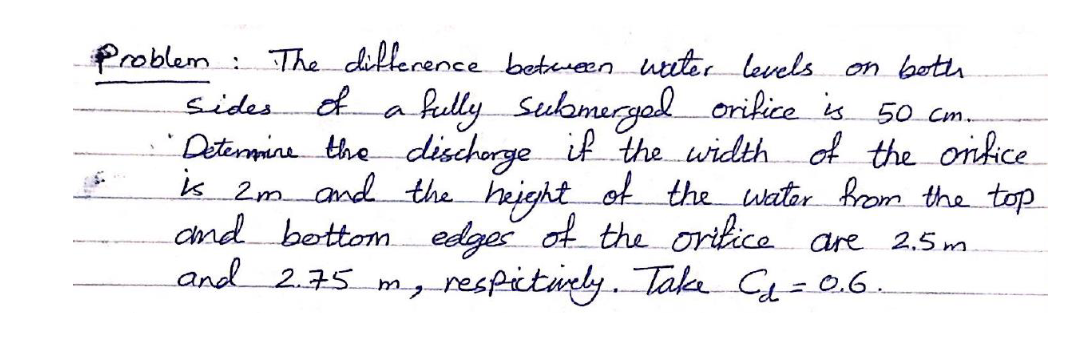 Problem : The difference between water levels on both
sides of a fully submerged orifice is 50 cm.
Determine the discharge if the width of the orifice
is 2m and the height of the water from the top
and bottom edges of the orifice are 2.5 m
and 2.75 m, respictively. Take Cd = 0.6.